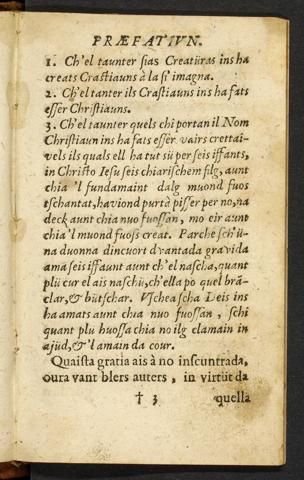 PRÆFATIVN.
1. Ch'el taunter sias Creatüras ins ha
creats Crastiauns à la si' imagna.
2. Ch'el tanter ils Crastiauns ins ha fats
esser Christiauns.
3. Ch'el taunter quels chi portan il Nom
Christiaun ins ha fats esser vairs crettai-
vels ils quals ell ha tut sü per seis iffants,
in Christo Iesu seis chiarischem filg, aunt
chia 'l fundamaint dalg muond fuos
tschantat, haviond purtà pisser per no, na
deck aunt chia nuo fuossan, mo eir aunt
chia 'l muond fuoss creat. Parche sch'ü-
na duonna dincuort dvantada gravida
ama seis iffaunt aunt ch'el nascha, quant
plü cur el ais naschü, ch'ella po quel brä-
clar, & bütschar. Vscheascha Deis ins
ha amats aunt chia nuo fuossan, schi
quant plü huossa chia no ilg clamain in
ajüd, & 'l amain da cour.
Quaista gratia ais à no inscuntrada,
oura vant blers auters, in virtüt da
† 3 quella